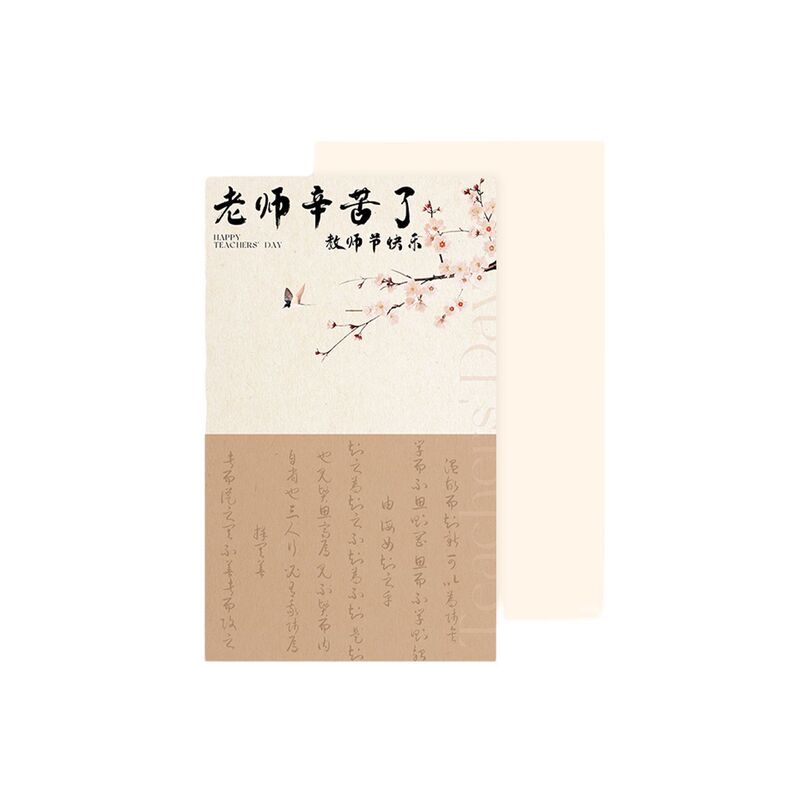 老师辛苦了
HAPPY
TEACHERS' DAY
教师节快乐
Teachers' Day
温故而知新可以为师矣
学而不思则罔思而不学则殆
由诲女知之乎
知之为知之不知为不知是知
也见贤思齐焉见不贤而内
自省也三人行必有我师焉
择其善
者而从之其不善者而改之